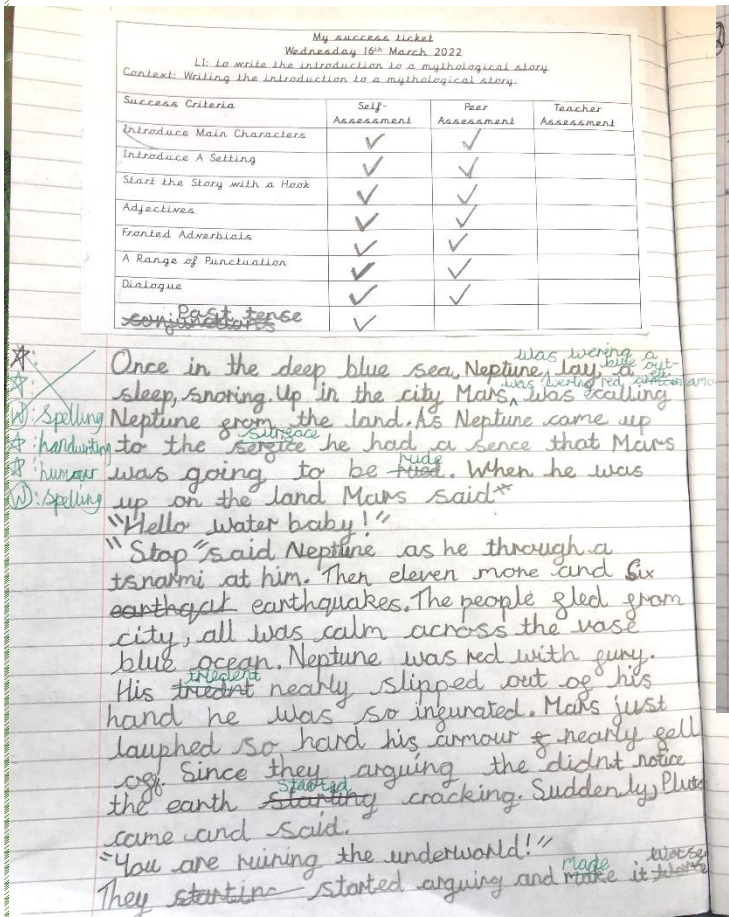 My success ticket
Wednesday 16th March 2022
LI: to write the introduction to a mythological story
Context: Writing the introduction to a mythological story.
Success Criteria Self-Assessment Peer Assessment Teacher Assessment
Introduce Main Characters ✓ ✓
Introduce A Setting ✓ ✓
Start the Story with a Hook ✓ ✓
Adjectives ✓ ✓
Fronted Adverbials ✓ ✓
A Range of Punctuation ✓ ✓
Dialogue ✓ ✓
Past tense
conjunctions ✓
was wering a blue out-
Once in the deep blue sea, Neptune lay, a
was wering red
sleep, snoring. Up in the city Mars was calling
W: Spelling Neptune from the land. As Neptune came up
surface
☆: handwriting to the sergice he had a sence that Mars
rude
☆: humour was going to be rued. When he was
W: spelling up on the land Mars said*
"Hello water baby!"
"Stop" said Neptune as he through a
tsnarmi at him. Then eleven more and six
earthqat earthquakes. The people fled from
city, all was calm across the vase
blue ocean. Neptune was red with fury.
triedent
His triednt nearly slipped out of his
hand he was so infurated. Mars just
lauphed so hard his armour f nearly fell
off. Since they arguing the didnt notice
started
the earth starting cracking. Suddenly, Pluto
came and said.
"You are ruining the underworld!"
made worse
They startinc started arguing and make it